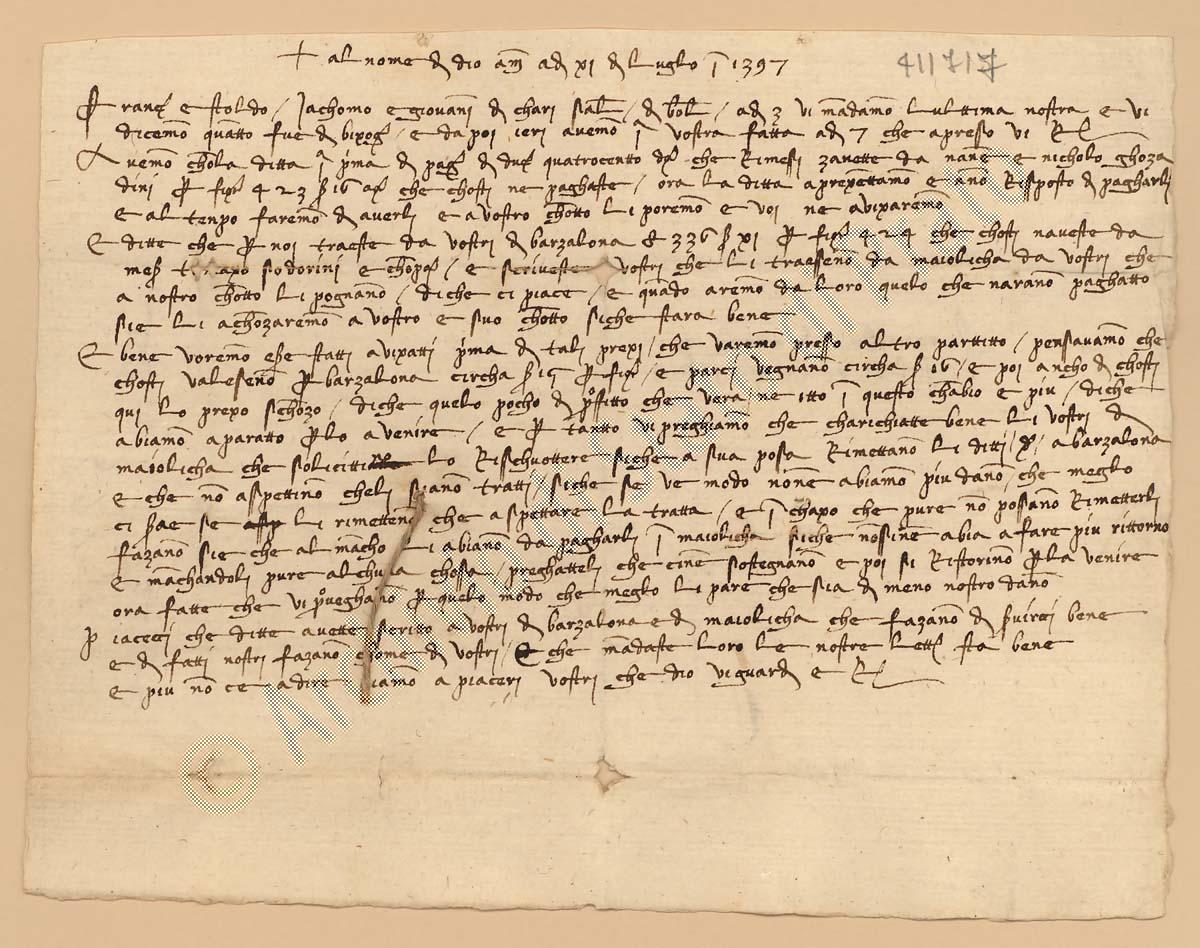 + al nome di dio am̃ adi xi di luglo ĩ 1397
411717
Franc̃ e stoldo / Jachomo e giovanĩ di chari sal͂ / di bol͂ / adi 3 vi mãdamõ lulttima nostra e vi
dicemõ quãtto fue di bixog̃ / e da poi ieri avemõ ĩ vostra fatta adi 7 che apresso vi R
Avemõ chola ditta ĩ p̃ma di pag̃ di duc̃ quatrocento che Rimessi zanette da e nicholo ghoza
dini p̱ fix̃ 423 ß 16 che chosti ne paghaste / ora la ditta aprexẽttamõ e anõ Rissposto di pagharli
e al tenpo faremõ di averli e a vostro chõtto li poremõ e voi ne avixaremõ
E ditte che p̱ noi traeste da vostri di barzalona £ 336 ß xi p̱ fix̃ 424 che chosti naveste da
sodorini e chõp̃ / e scriveste vostri che li traesseno da maiolicha da vostri che
a nostro chõtto li pognanõ / diche ci piace / e quãdo aremõ da loro quelo che naranõ paghatto
sie li achõzaremõ a vostro e suo chõtto siche stara bene
E bene voremõ eße statti avixatti p̃ma di tali prexi / che varemõ presso altro parttitto / pensavamõ che
chosti valesenõ p̱ barzalona circha ß p̱ fix̃ / e parci vegnanõ circha ß 16 / e poi ancho di chosti
qui lo prexo schõzo / diche quelo pocho di p̱fitto che vera ne itto ĩ questo chãbio e piu / diche
abiamõ aparatto p̱ lo avenire / e p̱ tantto vi preghiamõ che charichiatte bene li vostri di
maiolicha che solicitti lo Rischuottere siche a sua posa Rimettanõ li ditti / a barzalona
e che nõ aspettinõ cheli sianõ tratti / siche se ve modo none abiamõ piu danõ / che meglo
ci ßae se li rimettenõ che aspettare la tratta / e ĩ chapo che pure nõ possanõ Rimetterli
fazanõ sie che al mãcho li abianõ da pagharli ĩ maiolicha siche nõssine abia a fare piu rittorno
e mãchandoli pure alchuna chosa / preghatteli che cine sostegnanõ e poi si Ristorinõ p̱ la venire
ora fatte che vi p̱veghanõ p̱ quelo modo che meglo li pare che sia di meno nostro danõ
piaceci che ditte avette scritto a vostri di barzalona e di maiolicha che fazanõ di ßvirci bene
e di fatti nostri fazanõ chome di vostri / E che mãdaste loro le nostre lett̃ sta bene
e piu nõ ce a dire siamõ a piaceri vostri che dio vi guardi e R